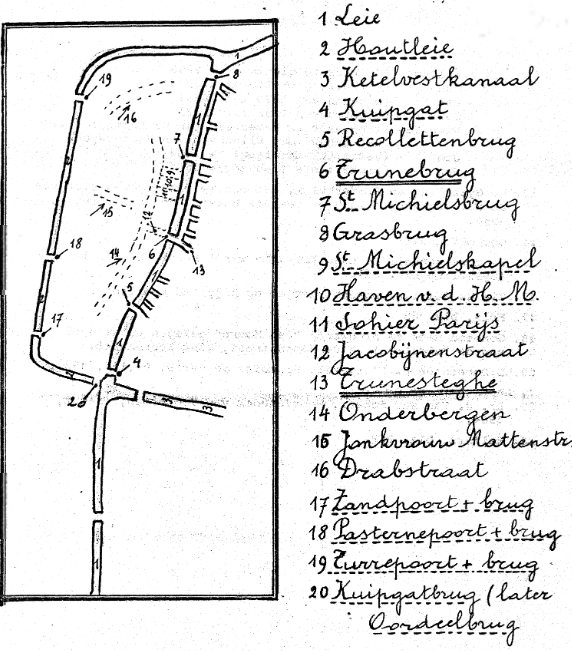 1 Leie
2 Houtleie
3 Ketelvestkanaal
4 Kuipgat
5 Recollettenbrug
6 Trunebrug
7 St Michielsbrug
8 Grasbrug
9 St Michielskapel
10 Haven v. d. H. M.
11 Sohier Parijs
12 Jacobijnenstraat
13 Trunesteghe
14 Onderbergen
15 Jonkvrouw Mattenstr.
16 Drabstraat
17 Zandpoort + brug
18 Pasternepoort + brug
19 Turrepoort + brug
20 Kuipgatbrug (later
Oordeelbrug
1
8
19
16
1
7
2
15
1
12
6
13
18
14
5
2
17
1
4
20
3
3
1
1